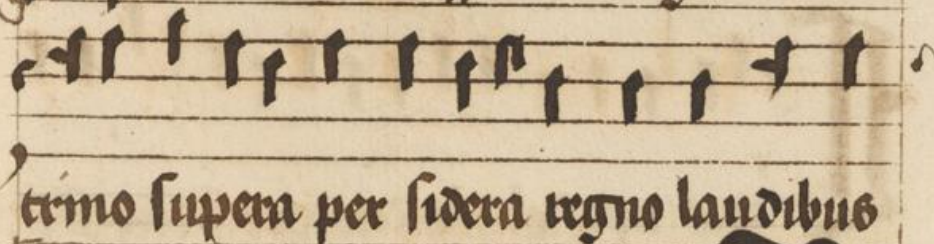 trino supera per sidera regno laudibus